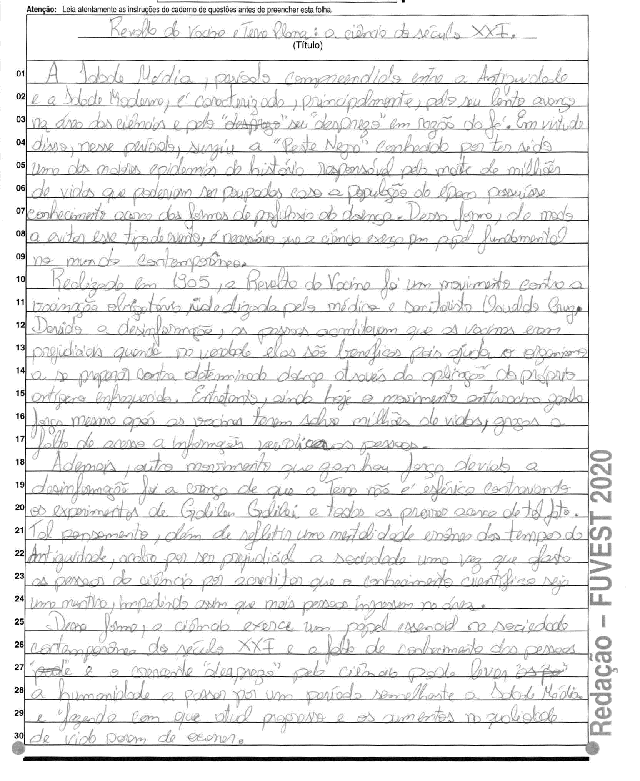 Atenção: Leia atentamente as instruções do caderno de questões antes de preencher esta folha.
Revolta da Vacina e Terra Plana: a ciência do século XXI.
(Título)
01 A Idade Média, período compreendido entre a Antiguidade
02 e a Idade Moderna, é caracterizado, principalmente, pelo seu lento avanço
03 na área das ciências e pelo "desprezo" seu "desprezo" em razão da fé. Em virtude
04 disso, nesse período, surgiu a "Peste Negra" conhecida por ter sido
05 uma das maiores epidemias da história responsável pela morte de milhões
06 de vidas que poderiam ser poupadas caso a população da época possuísse
07 conhecimento acerca das formas de profilaxia da doença. Dessa forma, de modo
08 a evitar esse tipo de evento, é necessário que a ciência exerça um papel fundamental
09 no mundo contemporâneo.
10 Realizada em 1905, a Revolta da Vacina foi um movimento contra a
11 vacinação obrigatória idealizada pelo médico e sanitarista Oswaldo Cruz.
12 Devido a desinformação, as pessoas acreditavam que as vacinas eram
13 prejudiciais quando na verdade elas são benéficas pois ajuda o organismo
14 a se preparar contra determinada doença através da aplicação do próprio
15 antígeno enfraquecido. Entretanto, ainda hoje o movimento antivacina ganha
16 força mesmo após as vacinas terem salvo milhões de vidas, graças a
17 falta de acesso a informação as pessoas.
18 Ademais, outro movimento que ganhou força devido a
19 desinformação foi a crença de que a Terra não é esférica contrariando
20 os experimentos de Galileu Galilei e todas as provas acerca de tal fato.
21 Tal pensamento, além de refletir uma mentalidade errônea dos tempos da
22 Antiguidade, acaba por ser prejudicial a sociedade uma vez que afasta
23 as pessoas da ciência por acreditar que o conhecimento científico seja
24 uma mentira, impedindo assim que mais pessoas ingressem na área.
25 Dessa forma, a ciência exerce um papel essencial na sociedade
26 contemporânea do século XXI e a falta de conhecimento das pessoas
27 e o "desprezo" pela ciência pode levar
28 a humanidade a passar por um período semelhante a Idade Média
29 e fazendo com que atual progresso e os aumentos na qualidade
30 de vida parem de ocorrer.
Redação – FUVEST 2020